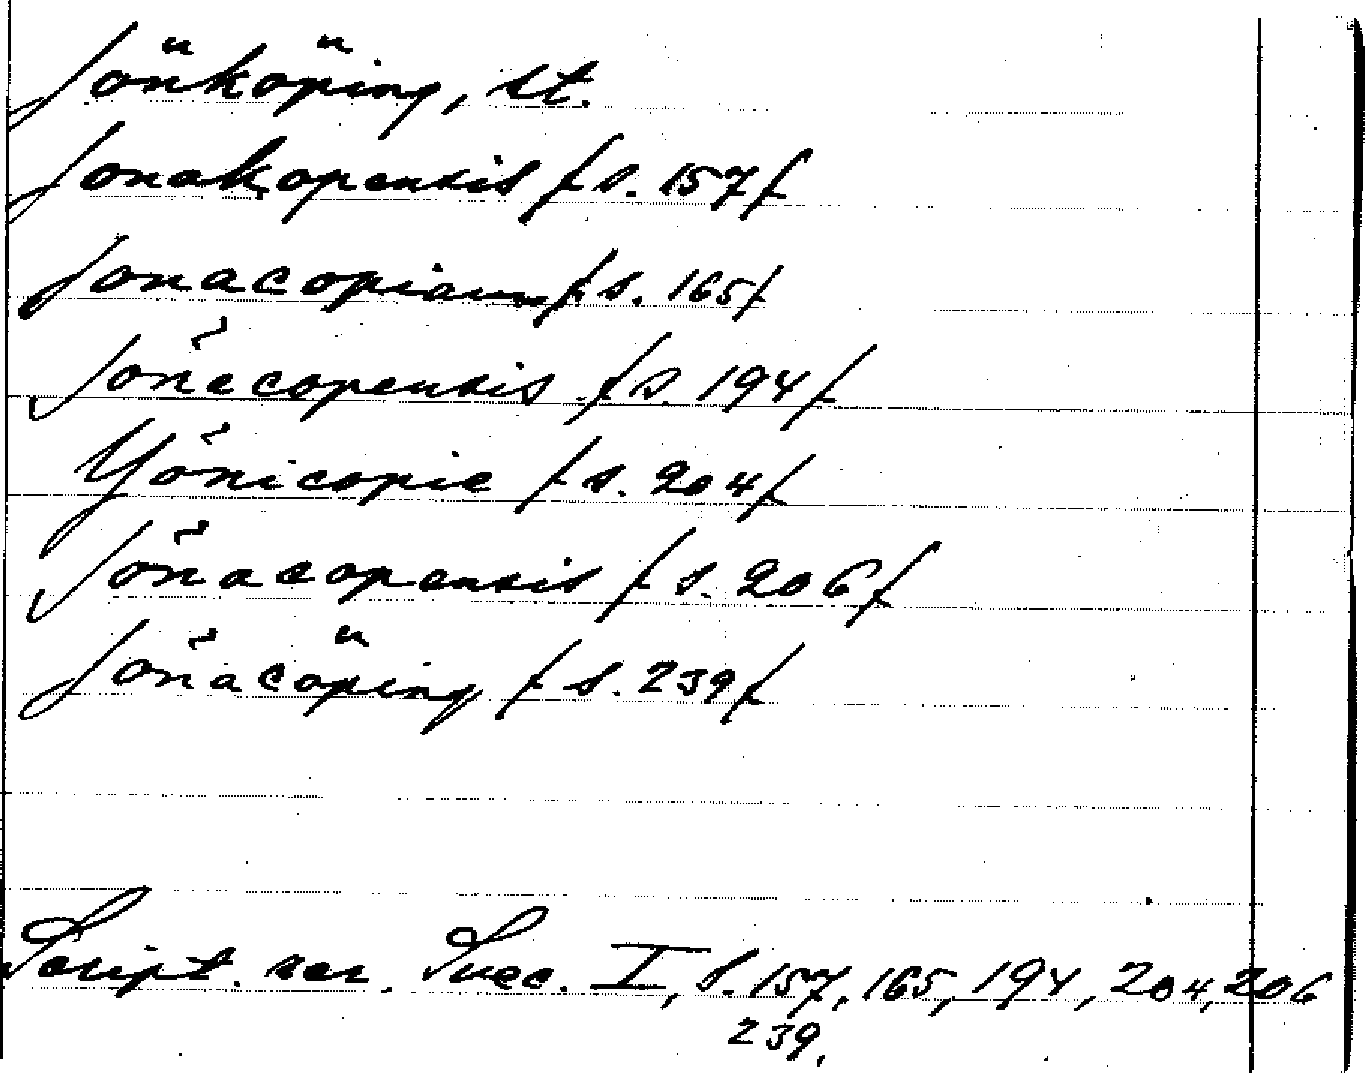 Jönköping, st.
Jonakopensis /s. 157/
Jonacopiam /s. 165/
Jönecopensis /s. 194/
Yönicopie /s. 204/
Jönacopensis /s. 206/
Jönacöping /s. 239/
Script. rer. Suec. I, s. 157, 165, 194, 204, 206
239.